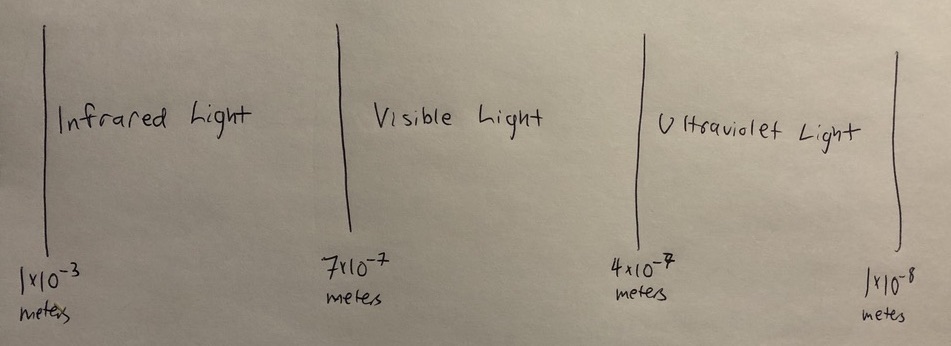 Infrared Light
Visible Light
Ultraviolet Light
1×10⁻³
meters
7×10⁻⁷
meters
4×10⁻⁷
meters
1×10⁻⁸
metes